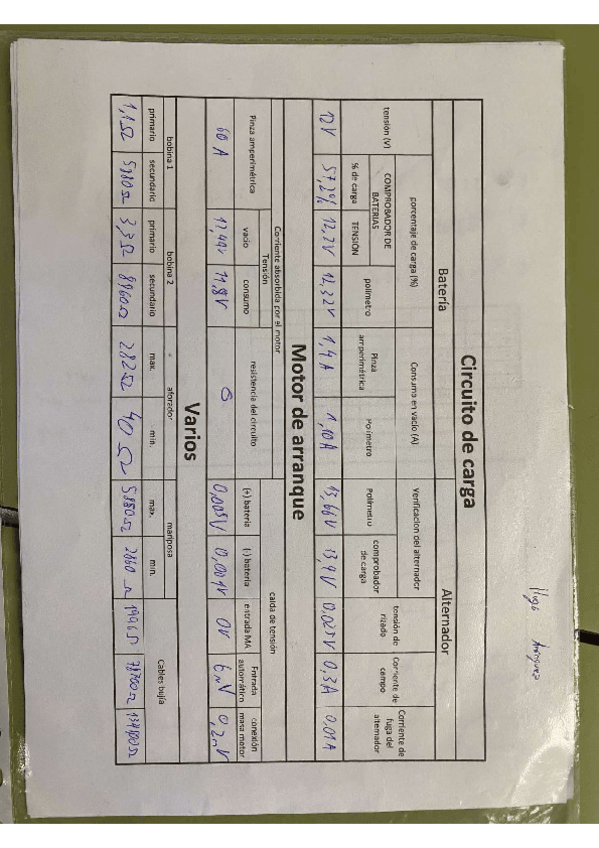 Hugo
Circuito de carga
Batería Alternador
porcentaje de carga (%) Consumo en vacío (A) Verificacion del alternador
tensión (V) COMPROBADOR DE BATERIAS polímetro Pinza amperimétrica Polímetro Polímetro comprobador de carga tensión de rizado Corriente de campo Corriente de fuga del alternador
% de carga TENSIÓN
12V 57,2% 12,2V 12,32V 1,4A 1,10A 13,66V 13,4V 0,025V 0,3A 0,01A
Motor de arranque
Corriente absorbida por el motor caida de tensión
Pinza amperimétrica Tensión resistencia del circuito (+) bateria (-) bateria estrada MA Entrada automático conexión masa motor
vacio consumo
60 A 12,44V 11,8V 0,005V 0,001V 0V 6mV 0,2mV
Varios
bobina 1 bobina 2 aforador mariposa Cables bujía
primario secundario primario secundario max. min. max. min.
1,1Ω 5880Ω 3,3Ω 8960Ω 282Ω 40Ω 5880Ω 2860Ω 1996Ω 78700Ω 134800Ω